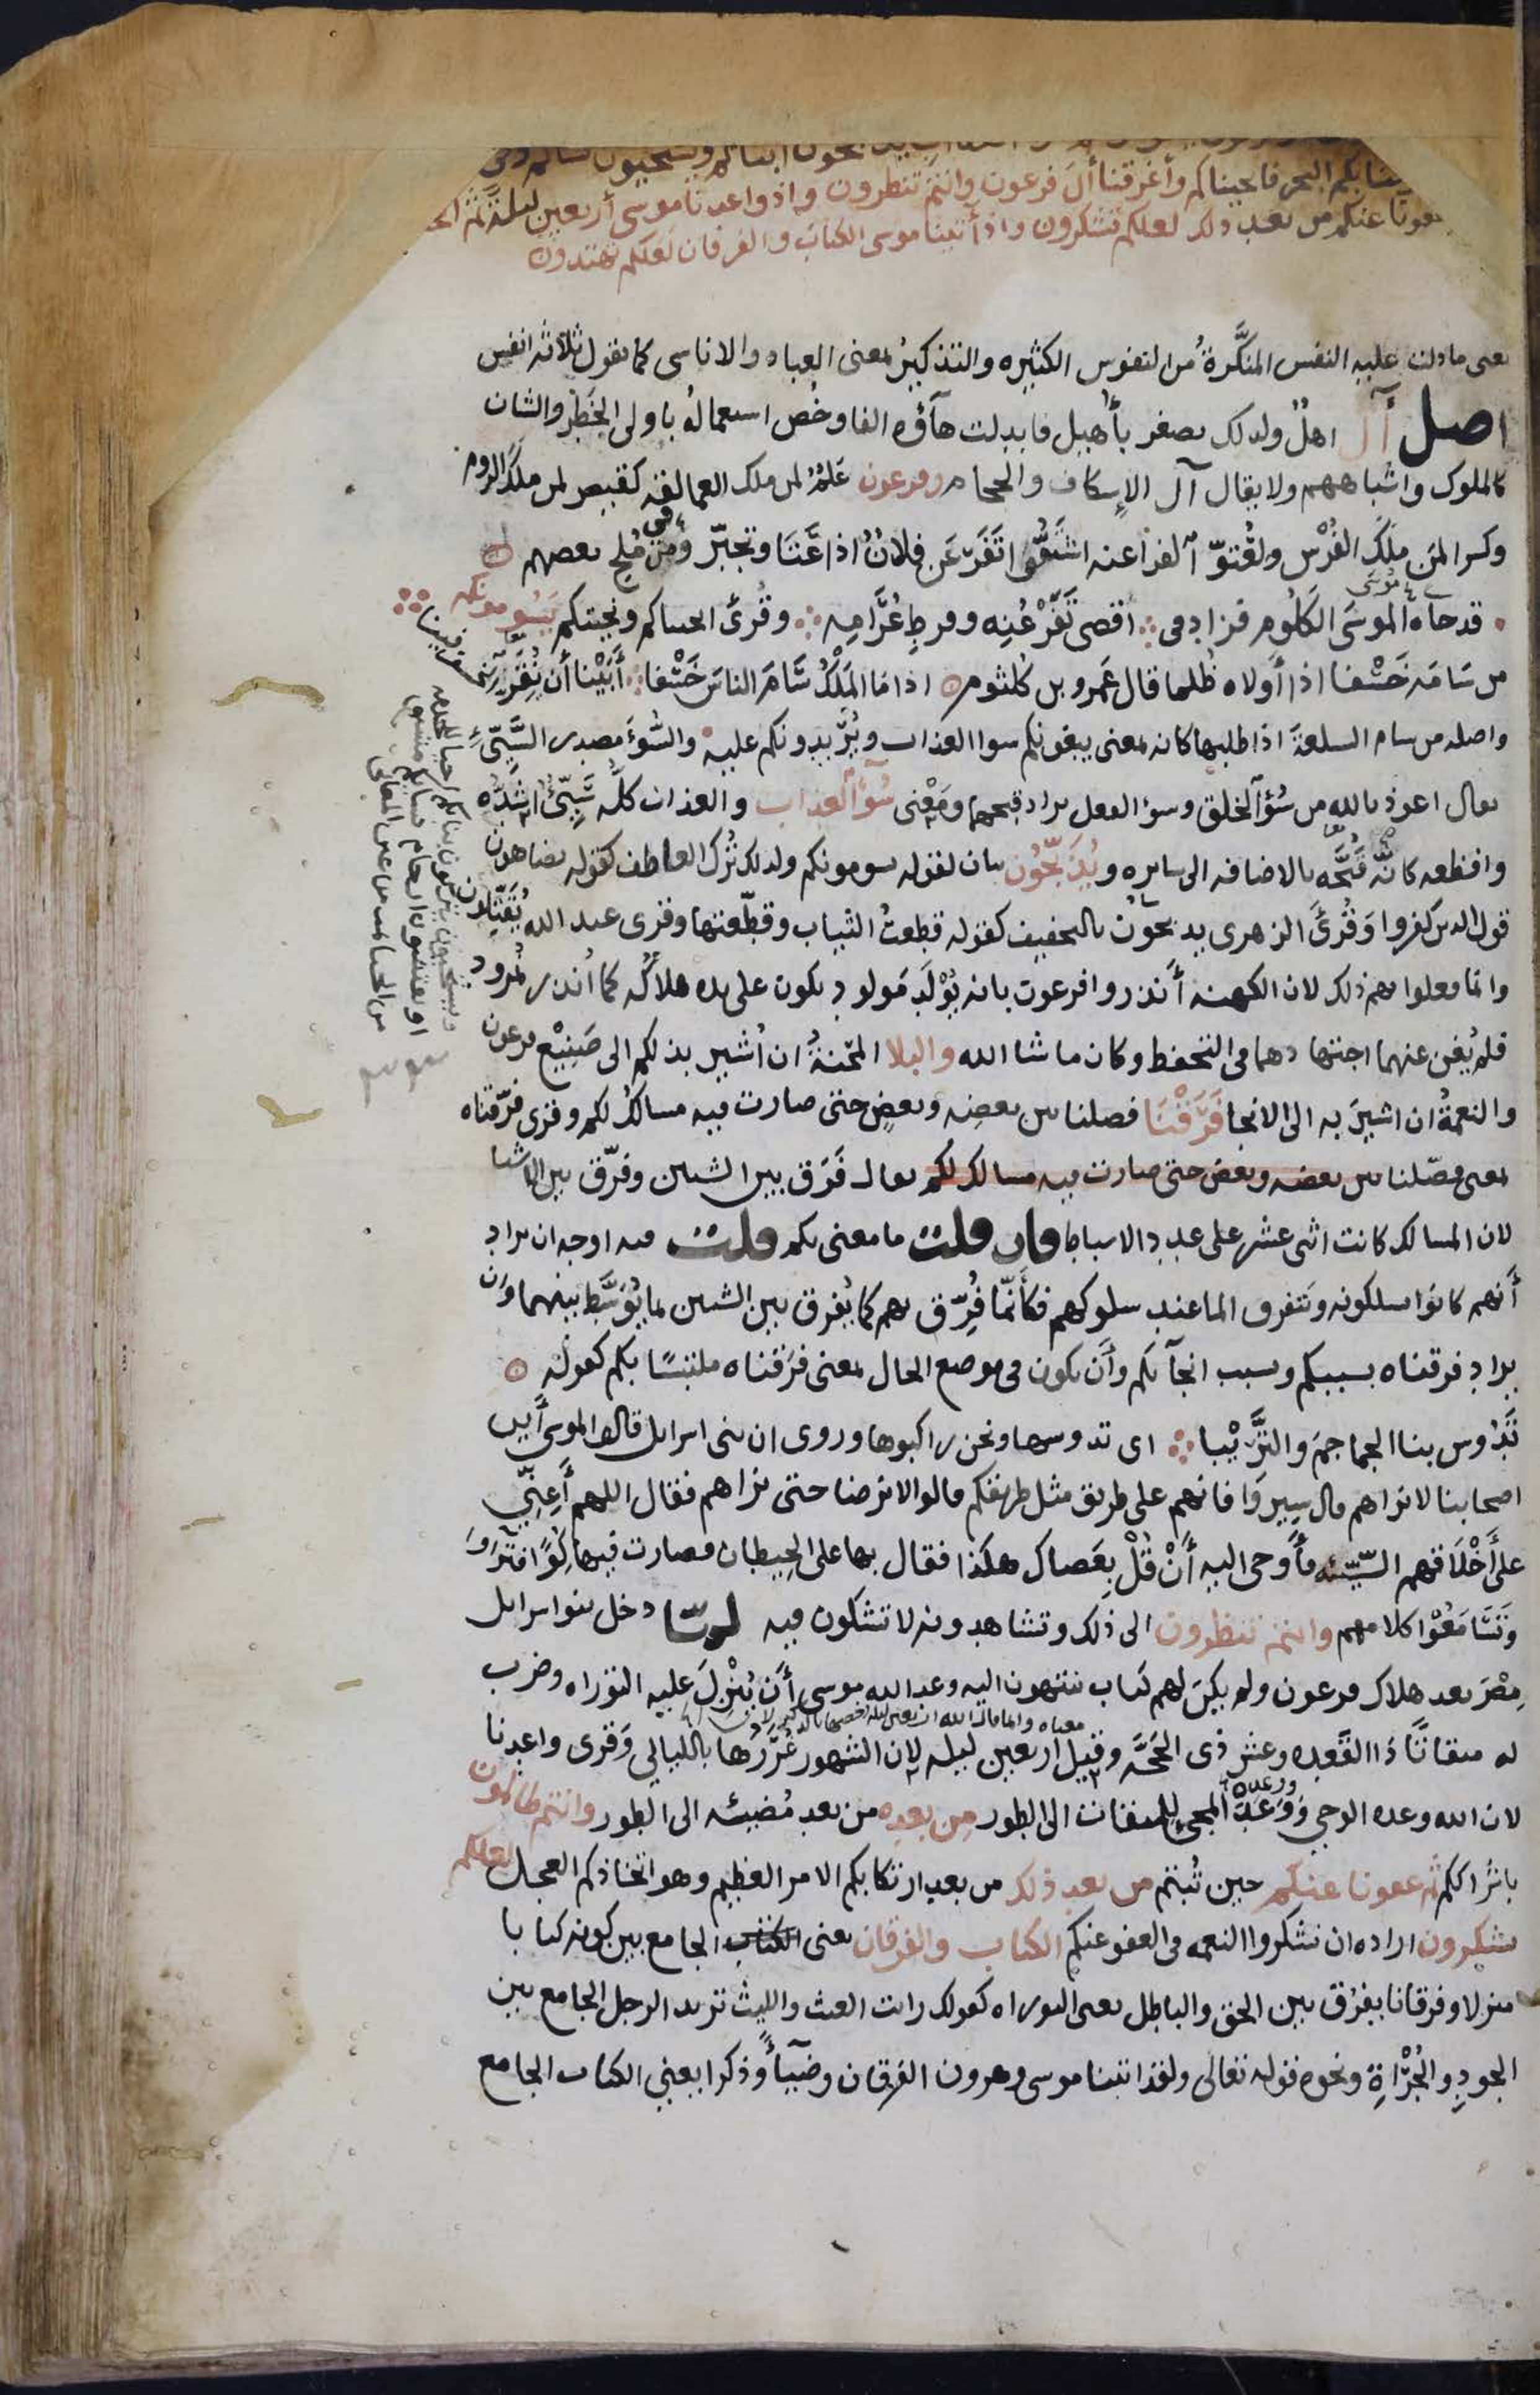 بكم البحر فانجيناكم وأغرقنا أل فرعون وانتم تنظرون واذ واعدنا موسى أربعين ليلة ثم
عفونا عنكم من بعد ذلك لعلكم تشكرون واذ أتينا موسى الكتاب والفرقان لعلكم تهتدون
يعنى ما دلت عليه النفس المنكَّرةُ من النفوس الكثيره والتذكيرُ بمعنى العباد والاناسى كما تقول ثلاثة انفس
اصل آل اهلٌ ولذلك يصغر بأُهيل فابدلت هآؤه الفا وخُص استعماله باولى الخَطر والشان
كالملوك واشباههم ولا يقال آل الاسكاف والحجام وفرعون عَلَمٌ لمن ملك العمالقه كقيصر لمن ملك الروم
وكسرا لمن ملك الفُرْس ولعُتوّ الفراعنه اشتقوا تَفَرعَن فلانٌ اذا عَتَا وتجبّر وفى مُلح بعضهم
قد جاه الموسَى الكَلُوم فزاد فى أقصى تَفَرْعُنِه وفرطِ عُرَامِه وقُرئ انجيناكم ونجيتكم يَسُومونكم
من سَامَه خَسْفا اذا أَولاه ظُلما قال عَمرو بن كُلثوم اذا مَا المَلْكُ سَامَ الناسَ خَسْفا أَبَيْنا أن نُقِرَّ الخسف فينا
واصله من سام السلعة اذا طلبها كانه بمعنى يبغونكم سوا العذاب ويُريدونكم عليه والسُّوءَ مصدر السَّيِّئ
يقال اعوذ بالله من سُوْٓ الخلق وسوء الفعل يراد قبحهما ومَعْنى سُوْٓ العذاب والعذاب كلُّه سَيِّئٌ اشدُّه
وافظعه كانَّه قُبْحُه بالاضافه الى سايره ويُذَبِّحُون بيان لقوله يسومونكم ولذلك تُرك العاطف كقوله يضاهون
قول الذين كفروا وَقُرئَ الزهرى يذبحون بالتخفيف كقوله قطعتُ الثياب وقطّعتها وقرى عبد الله يُقَتِّلون
وانما فعلوا بهم ذلك لان الكهنه أَنذروا فرعون بانه يُوْلَد مَولود يكون على يده هلاكُه كما أنذر نمرود
فلم يُغن عنهما اجتهادهما فى التحفظ وكان ما شا الله والبلا المحْنةُ ان اُشير بذلكم الى صَنِيْع فرعون
والنعمةُ ان اشيرَ به الى الانجا فَرَقْنَا فصلنا بين بعضِه وبعضٍ حتى صارت فيه مسالكُ لكم وقرى فرّقناه
بمعنى فصّلنا بين بعضه وبعض حتى صارت فيه مسالك لكم يقال فَرَق بين الشيئين وفرّق بين الاشيا
لان المسالك كانت اثنى عشر على عدد الاسباط فان قلت ما معنى بكم قلت فيه اوجه ان يراد
أنهم كانوا يسلكونه وتتفرق الما عند سلوكهم فكأنّما فُرِّق بهم كما يُفرق بين الشيئين بما يُوَسَّط بينهما وان
يراد فرقناه بسببكم وبسبب انجآئكم وأن يكون فى موضع الحال بمعنى فرَقناه ملتبسًا بكم كقوله
تَدُوس بنا الجماجمَ والتَّرِيْبا اى تدوسها ونحن راكبوها وروى ان بنى اسرايل قالوا لموسى أين
اصحابنا لا نراهم قال سيروا فانهم على طريق مثل طريقكم قالوا لا نرضا حتى نراهم فقال اللهم أَعِنِّي
على أَخْلاقهم السّيّئه فأَوحى اليه أَنْ قُلْ بِعَصاك هكذا فقال بها على الحِيطان فصارت فيها كُوًا فترآوا
وتَسَامَعُوْا كلامهم وانتم تنظرون الى ذلك وتشاهدونه لا تشكون فيه لمّا دخل بنوا اسرايل
مِصْرَ بعد هلاك فرعون ولم يكن لهم كتاب ينتهون اليه وعد الله موسى أَن يُنْزِلَ عليه التوراه وضرب
له ميقاتًا ذا القَعده وعشر ذى الحَجَّه وقيل اربعين ليله لان الشهور غُرَرُها بالليالي وَقرى واعدنا
لان الله وعده الوحى وَوَعَدَ المجئ للميقات الى الطور مِن بعدِه من بعد مُضيئه الى الطور وانتم ظالمون
باشراككم ثم عفونا عنكم حين تُبتم من بعد ذلك من بعد ارتكابكم الامر العظيم وهو اتخاذكم العجل لعلكم
تشكرون اراده ان تشكروا النعمه فى العفو عنكم الكتاب والفرقان يعنى الكتاب الجامع بين كونه كتابا
منزلا وفرقانا يفرُق بين الحق والباطل يعنى التوراه كقولك رايت الغيث والليث تريد الرجل الجامع بين
الجودِ والجُرْاةِ ونحوه قوله تعالى ولقد اتينا موسى وهرون الفرقان وضيآءً وذكرا يعنى الكتاب الجامع